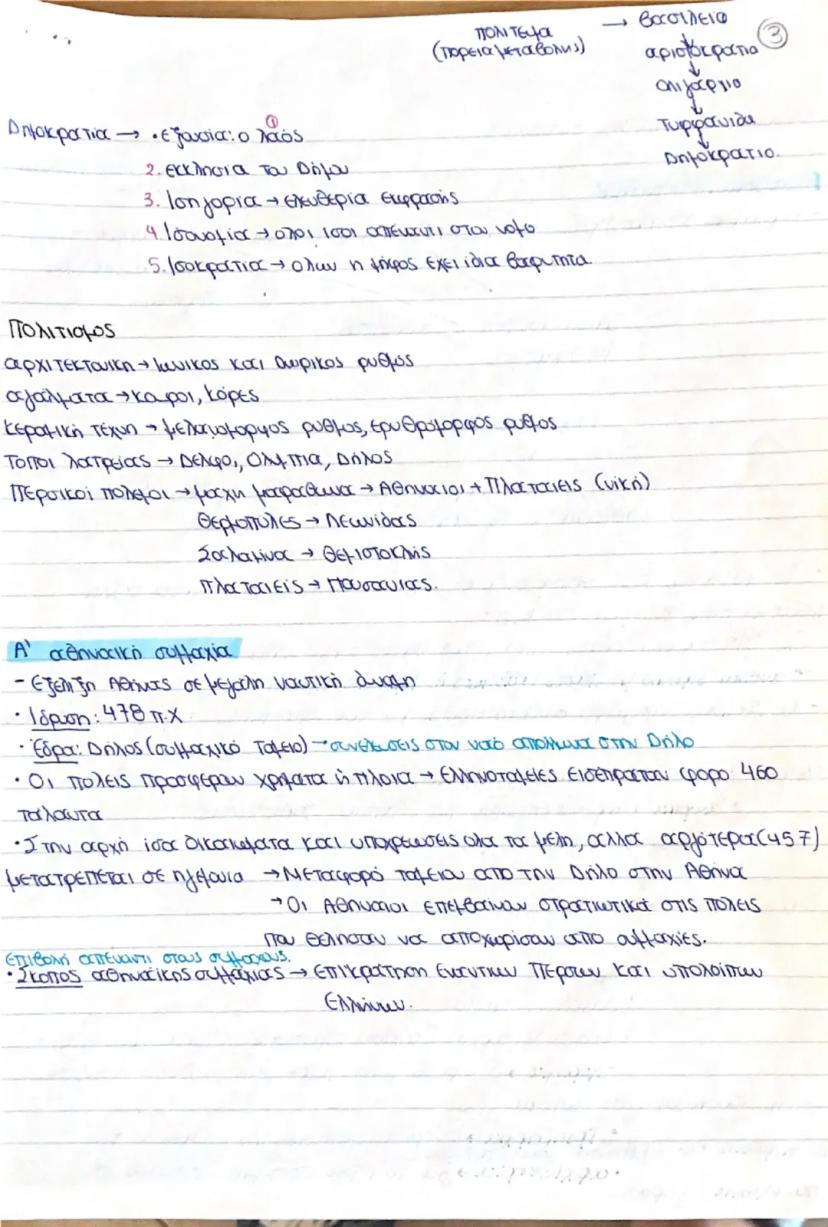 ③
ΠΟΛΙΤΕΥΜΑ → βασιλεία
(πορεία μεταβολής) ↓
αριστοκρατία
↓
ολιγαρχία
↓
Τυραννίδα
↓
Δημοκρατία.
Δημοκρατία → • εξουσία: ο λαός ①
2. εκκλησία του Δήμου
3. Ισηγορία → ελευθερία εκφρασής
4. Ισονομία → ολοι ισοι απέναντι στον νομο
5. Ισοκρατία → ολων η ψήφος έχει ίδια βαρυτητα
ΠΟΛΙΤΙΣΜΟΣ
αρχιτεκτονικη → Ιωνικος και Δωρικος ρυθμός
αγάλματα → κουροι, κόρες
κεραμική τέχνη → μελανομορφος ρυθμος, ερυθρόμορφος ρυθμος
Τόποι λατρείας → Δελφοι, Ολυμπια, Δήλος
Περσικοί πολεμοι → μαχη μαραθωνα → Αθηναιοι + Πλαταιεις (νίκη)
Θερμοπύλες → Λεωνίδας
Σαλαμινα → Θεμιστοκλής
Πλαταιείς → Παυσανιας.
Α' αθηναϊκή συμμαχία
- Εξέλιξη Αθήνας σε μεγάλη ναυτική δυναμη
• Ιδρυση: 478 π.Χ
• Έδρα: Δήλος (συμμαχικό Ταμείο) → συνελευσεις στον ναό απολλωνα στην Δήλο
• Οι πόλεις προσφεραν χρήματα ή πλοια → Ελληνοταμείες εισέπρατταν φορο 460
ταλαντα
• Στην αρχή ίσα δικαιωματα και υποχρεωσεις ολα τα μελη, αλλα αργότερα (457)
μετατρεπεται σε ηγεμονια → Μεταφορά ταμειου απο την Δήλο στην Αθήνα
→ Οι Αθηναιοι επεμβαιναν στρατιωτικά στις πόλεις
που θελησαν να αποχωρίσουν απο συμμαχιές.
Επιβολή απέναντι στους συμμαχους.
• Σκοπος αθηναϊκής συμμαχιας → Επικρατηση Εναντιων Περσων και υπολοίπων
Ελλήνων.